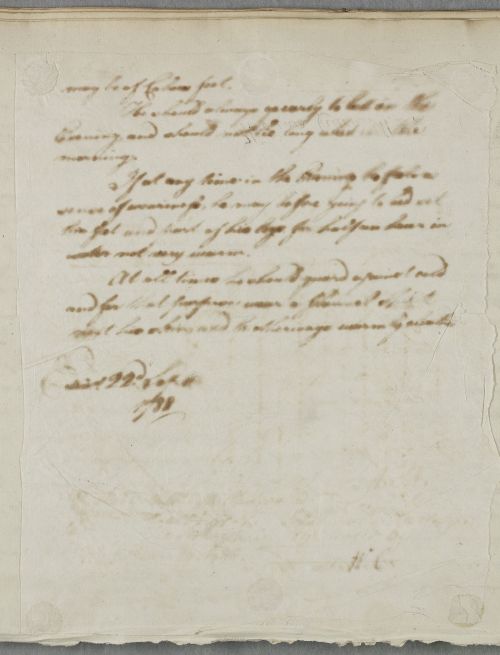 may be of
He should always go early to bed in the
Evening, and should not lie long abed in the
morning.
If at any time in the Evening he feels a
sense of weariness, he may before going to bed set
his feet and part of his legs for half an hour in
water not very warm.
At all times he should guard against cold
and for that purpose wear a flannel shirt
next his skin and be otherways warmly
22d
W. C.